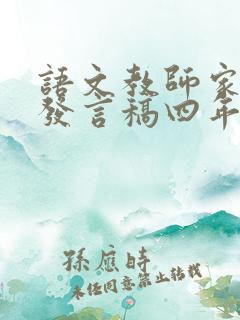 語文教師家
發言稿四年
孫應時
未經同意禁止轉載